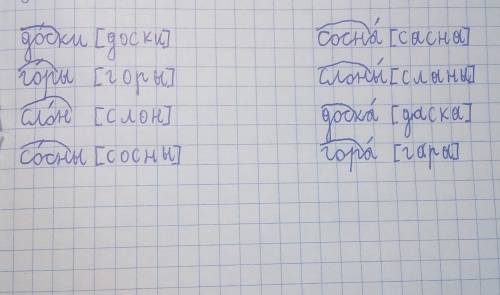 до́ски [доски]
го́ры [горы]
сло́н [слон]
со́сны [сосны]
сосна́ [сасна]
слоны́ [сланы]
доска́ [даска]
гора́ [гары]